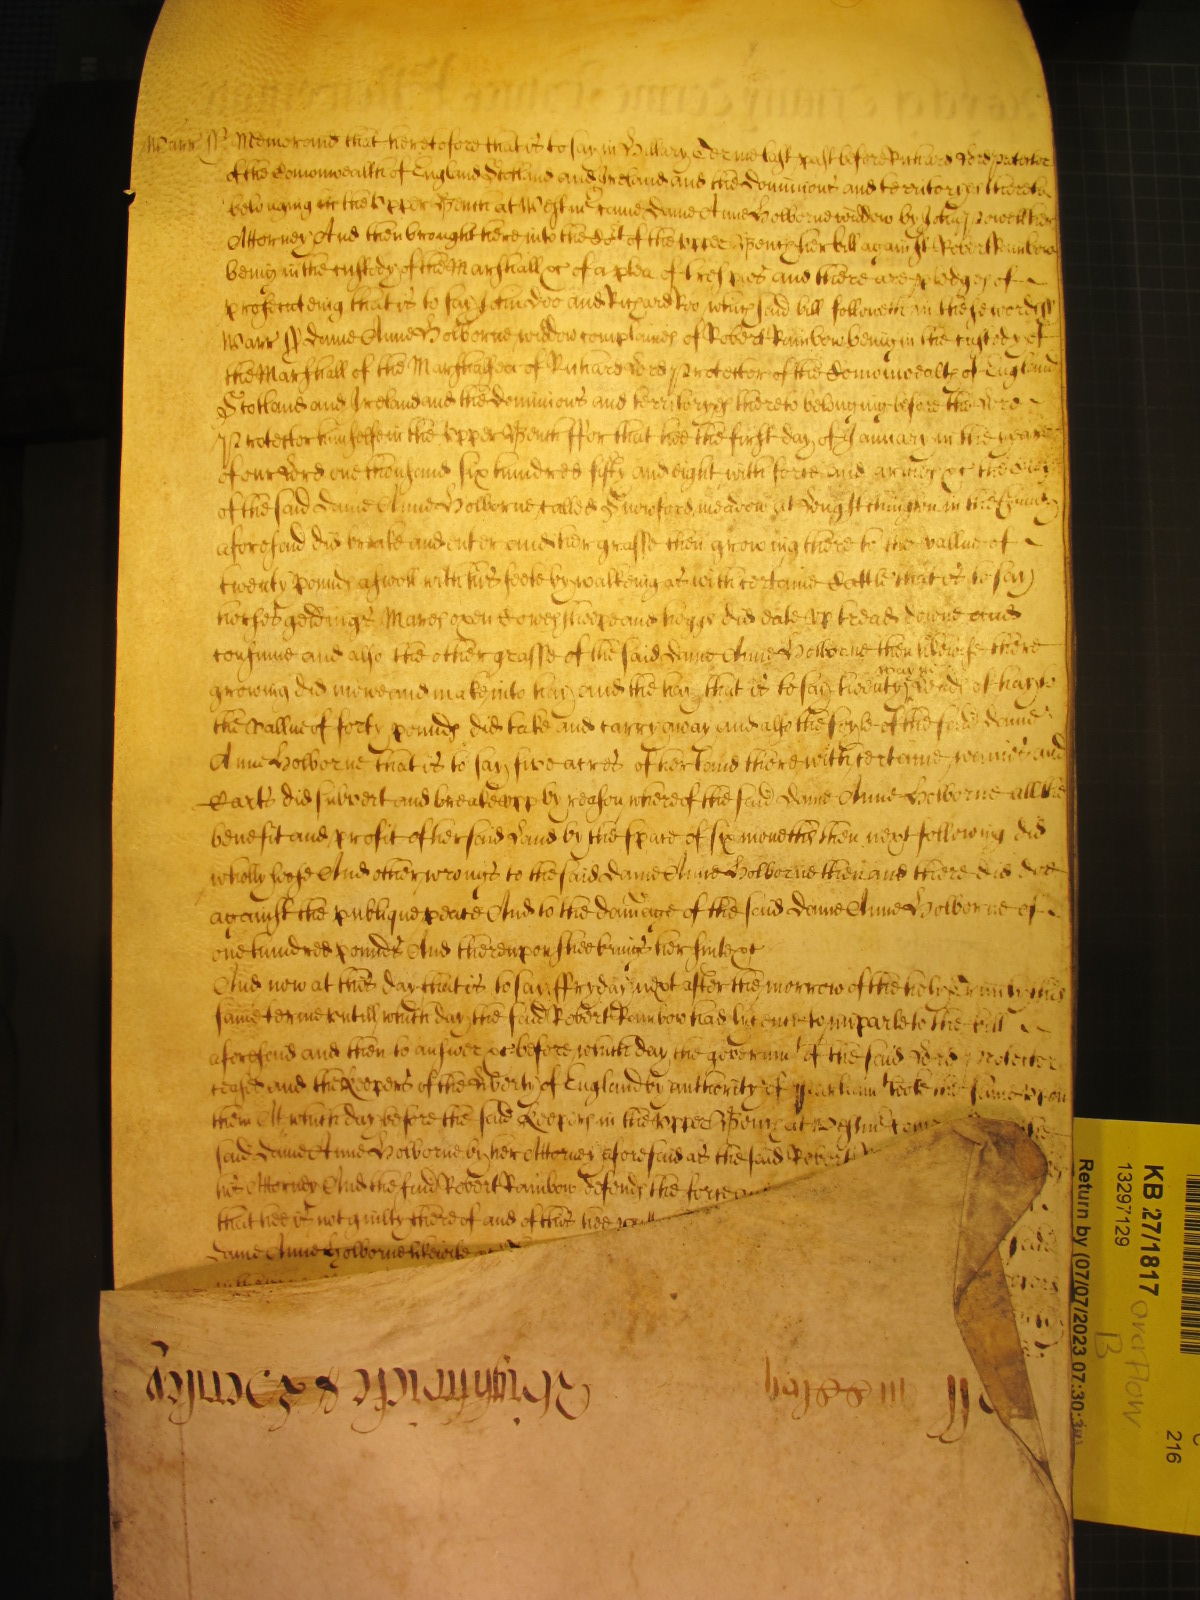 Warr ss Memorand that heretofore that is to say in Hillary Terme last past before Richard Lord Protector
of the Comonwealth of England Scotland and Ireland and the Dominions and territoryes thereto
belonging in the Upper Bench at Westm came Dame Anne Holborne widdow by John Powell her
Attorney And then brought here into the Court of the upper Bench her bill against Robert Rainbow
being in the custody of the Marshall &c of a plea of trespas and there are pledges of
prosecuteing that is to say John Doo and Richard Roo which said bill followeth in these words ss
Warr ss Dame Anne Holborne widdow complaines of Robert Rainbow being in the custody of
the Marshall of the Marshalsea of Richard Lord Protector of the Comonwealth of England
Scotland and Ireland and the Dominions and territoryes thereto belonging before the Lord
Protector himselfe in the upper Bench ffor that hee the first day of January in the yeare
of our Lord one thousand six hundred fifty and eight with force and armes &c the
of the said Dame Anne Holborne called Snowford meadow at Long Itchington in the County
aforesaid did breake and enter and her grasse then growing there to the vallue of
twenty pounds aswell with his feete by walkeing as with certaine Cattle that is to say
horses geldings Mares oxen Cowes sheepe and hoggs did eate up tread downe and
consume and also the other grasse of the said Dame Anne Holborne then likewise there
growing did mowe and make into hay and the hay that is to say twenty loads of hay to
the vallue of forty pounds did take and carry away and also the soyle of the said Dame
Anne Holborne that is to say five acres of her Land there with certaine waines and
Carts did subvert and breake upp by reason whereof the said Dame Anne Holborne all the
benefit and profit of her said Land by the space of six moneths then next following did
wholly loose And other wrongs to the said Dame Anne Holborne then and there did doe
against the publique peace And to the damage of the said Dame Anne Holborne of
one hundred pounds And thereupon shee brings her suite &c
And now at this day that is to say ffryday next after the morrow of the holy Trinity this
same terme untill which day the said Robert Rainbow had licence to imparle to the bill
aforesaid and then to answer &c before which day the governmt of the said Lord Protector
ceased and the Keepers of the Liberty of England by authority of Parliamt tooke the same upon
them At which day before the said Keepers in the upper Bench at Westm come
said Dame Anne Holborne by her Attorney aforesaid as the said Robert
his Attorney And the said Robert Rainbow defends the force
that hee is not guilty thereof and of this hee
Dame Anne Holborne likewise
KB 27/1817
13297129
Return by (07/07/2023 07:30:
overflow
B
216